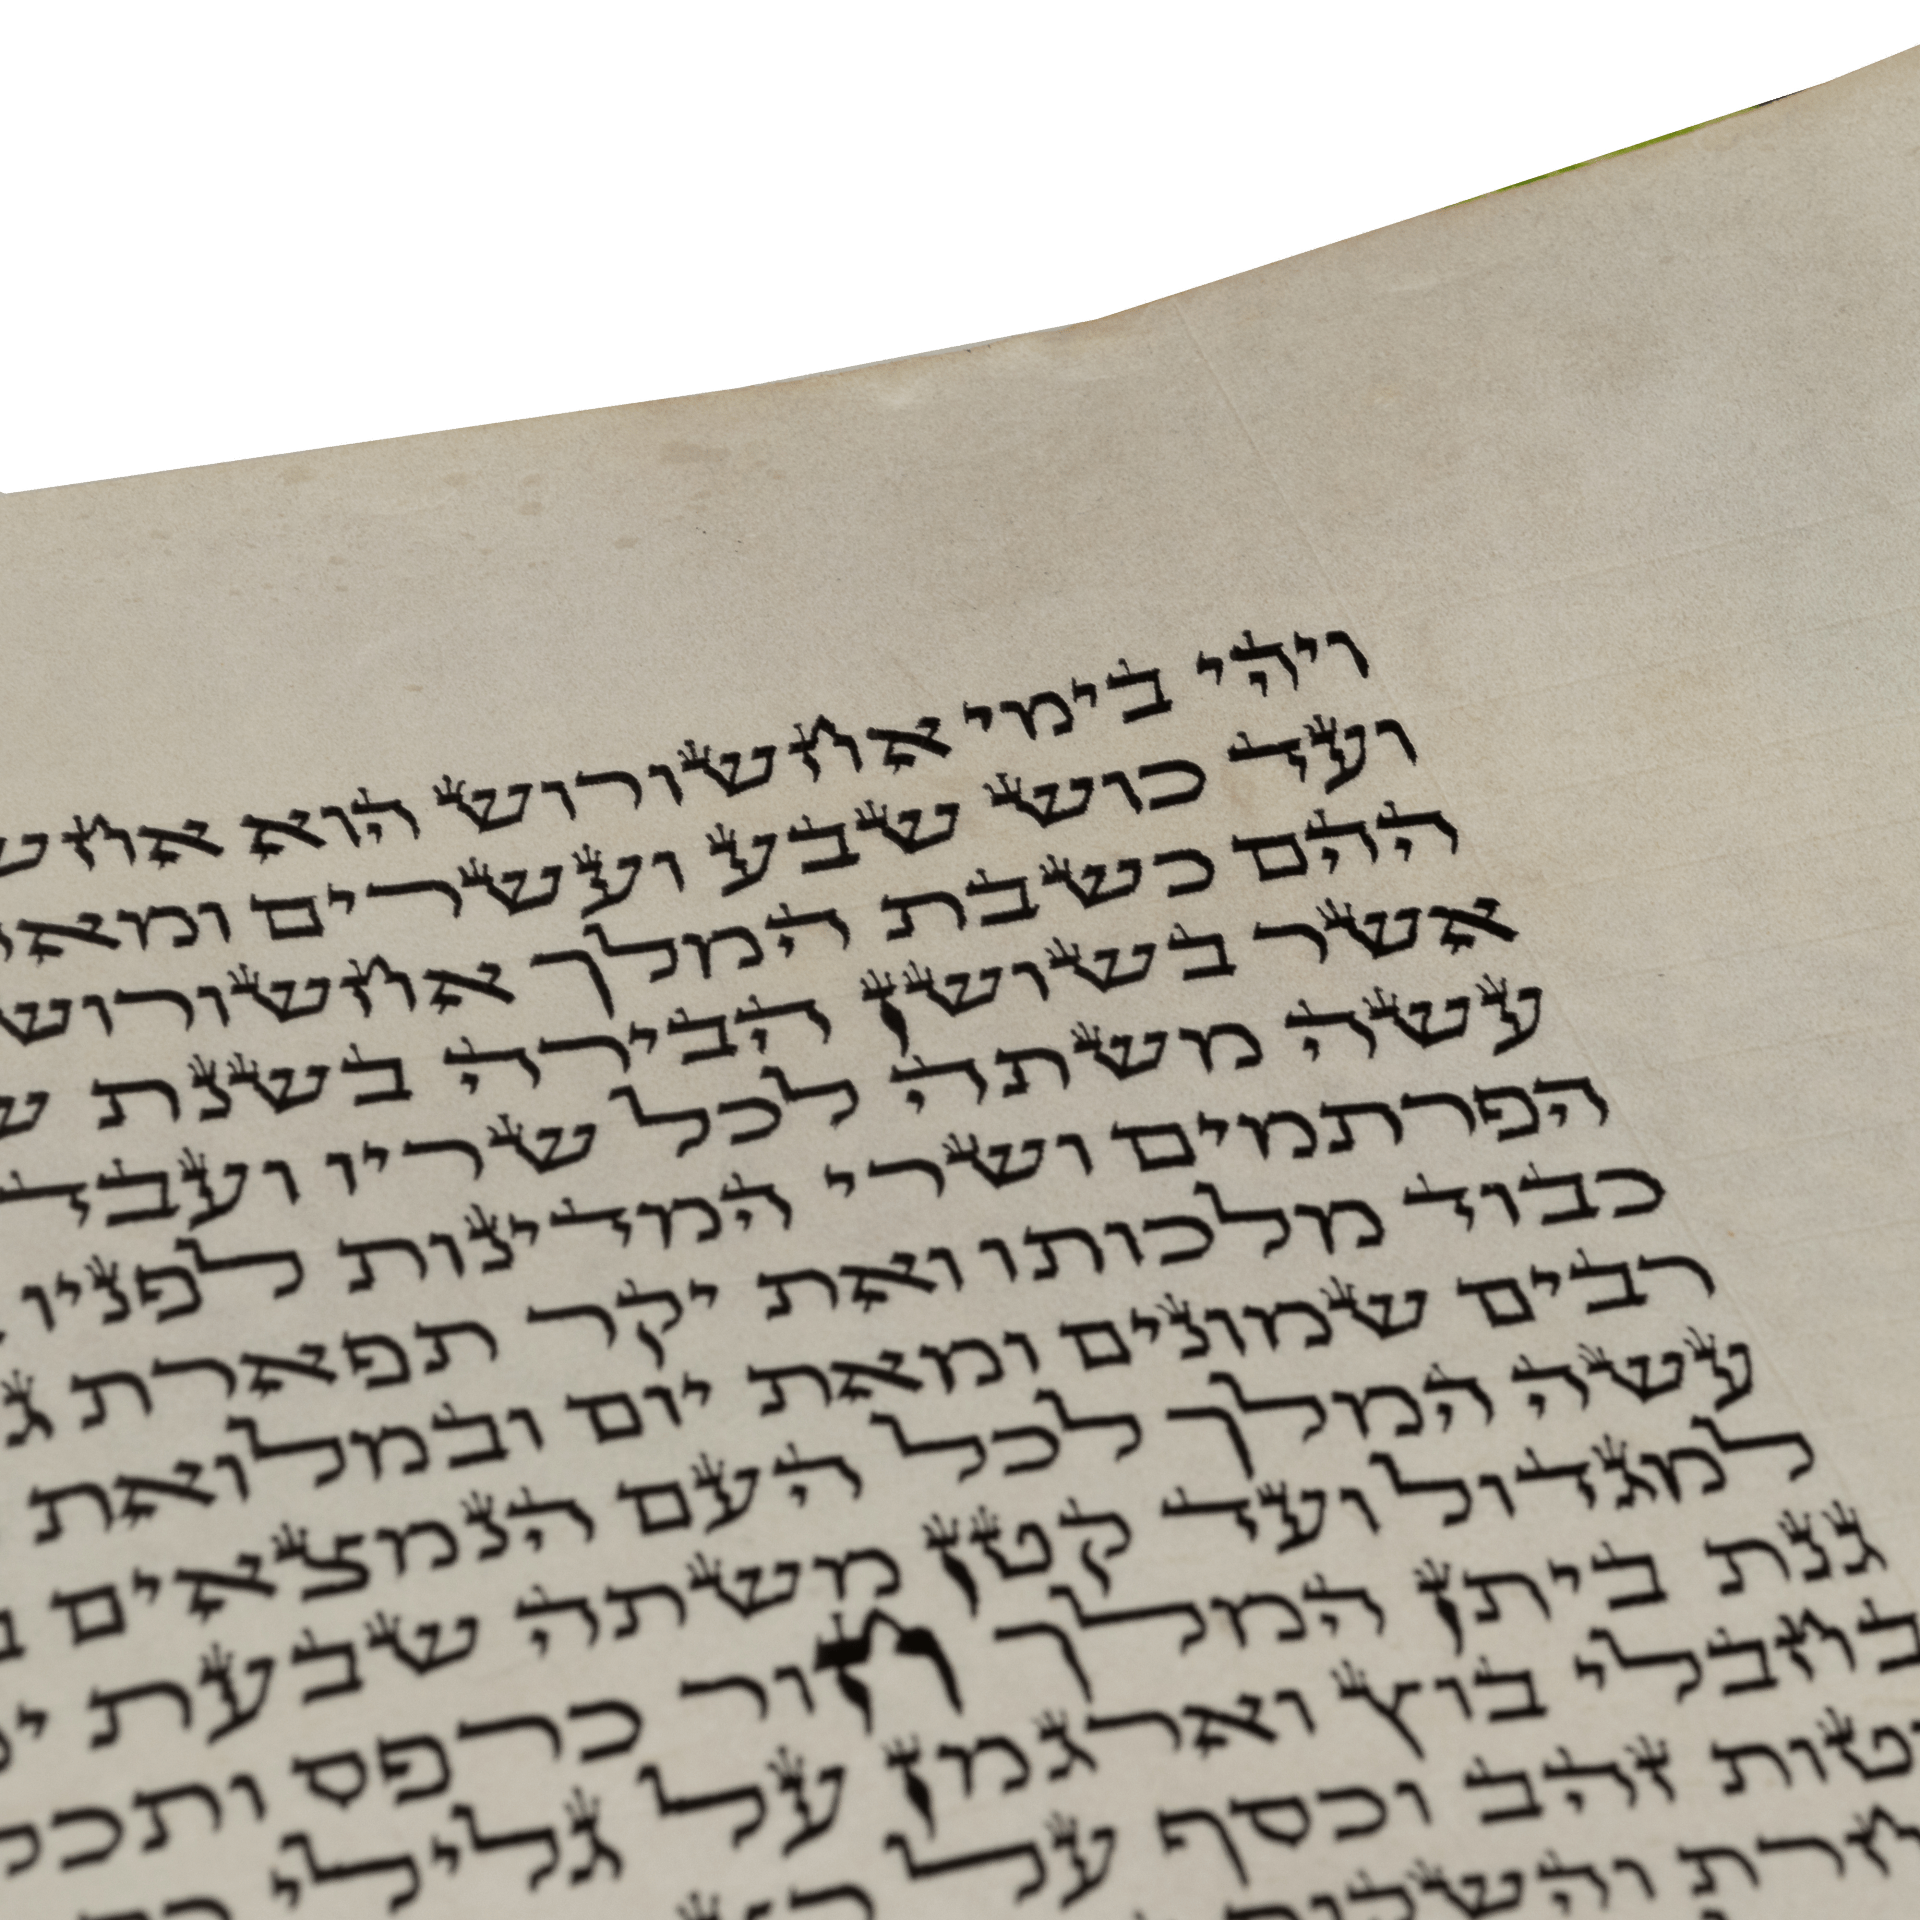 ויהי בימי אחשורוש הוא
ועד כוש שבע ועשרים
ההם כשבת המלך אחשורוש
אשר בשושן הבירה בשנת
עשה משתה לכל שריו
הפרתמים ושרי המדינות לפניו
כבוד מלכותו ואת יקר תפארת
רבים שמונים ומאת יום ובמלואת
עשה המלך לכל העם הנמצאים
למגדול ועד קטן משתה שבעת
גנת ביתן המלך חור כרפס
בחבלי בוץ וארגמן על גלילי
זהב וכסף על